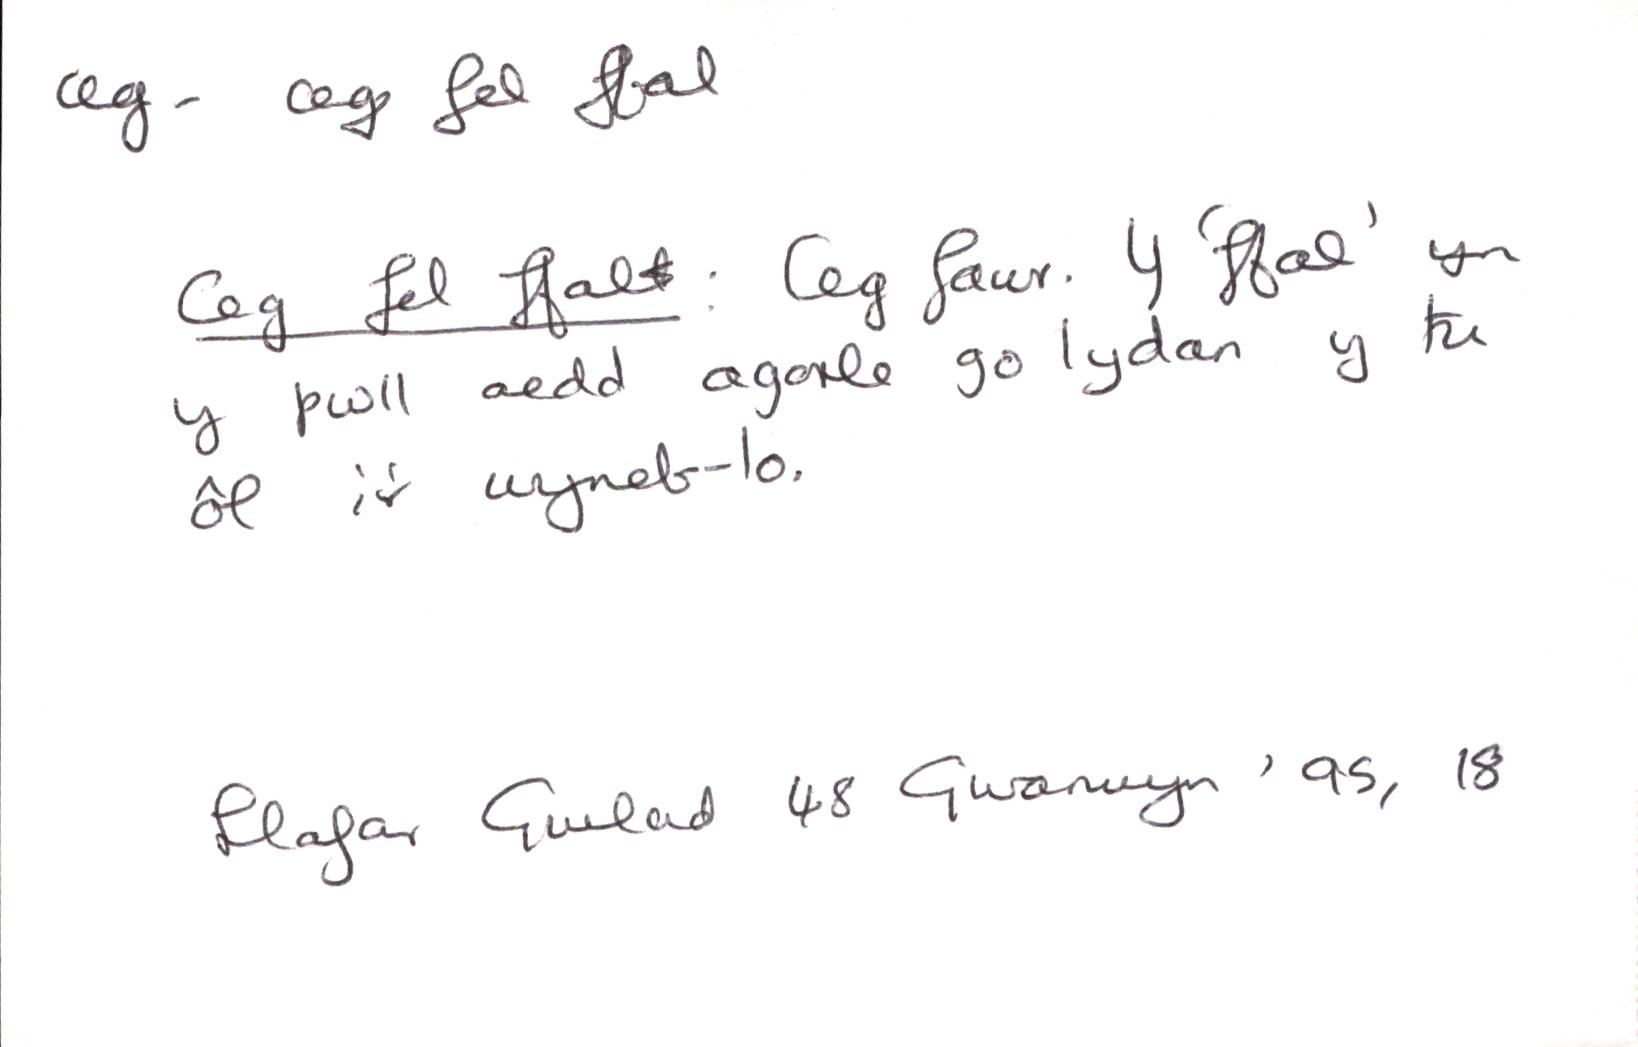 ceg - ceg fel ffal
Ceg fel ffal: Ceg fawr. Y 'ffal' yn
y pwll oedd agorle go lydan y tu
ôl i'r wyneb-lo.
Llafar Gwlad 48 Gwanwyn '95, 18